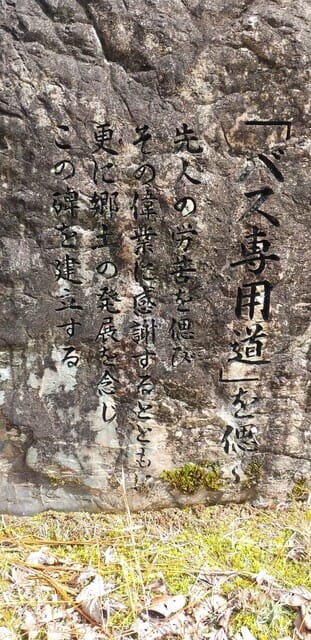 「バス専用道」を偲ぶ
先人の労苦を偲び
その偉業に感謝するとともに
更に郷土の発展を念じ
この碑を建立する